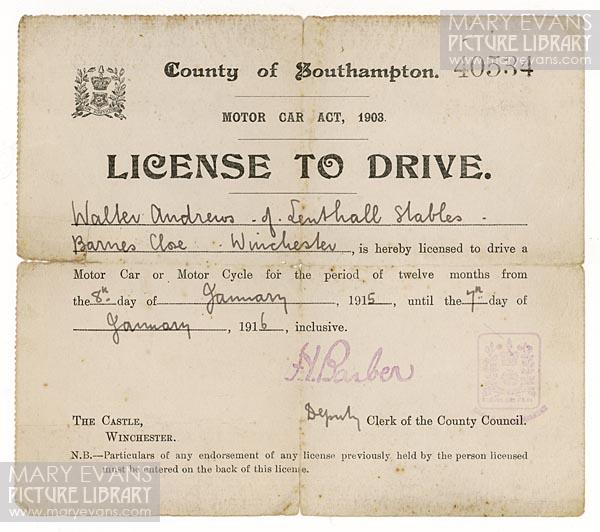 MARY EVANS
PICTURE LIBRARY
www.maryevans.com
County of Southampton. 40534
MOTOR CAR ACT, 1903.
LICENSE TO DRIVE.
Walter Andrews - of Lenthall Stables -
Barnes Close. Winchester, is hereby licensed to drive a
Motor Car or Motor Cycle for the period of twelve months from
the 8th day of January, 1915, until the 7th day of
January, 1916, inclusive.
H. Barber
Deputy Clerk of the County Council.
THE CASTLE,
WINCHESTER.
N.B.—Particulars of any endorsement of any license previously held by the person licensed
must be entered on the back of this license.
MARY EVANS
PICTURE LIBRARY
www.maryevans.com